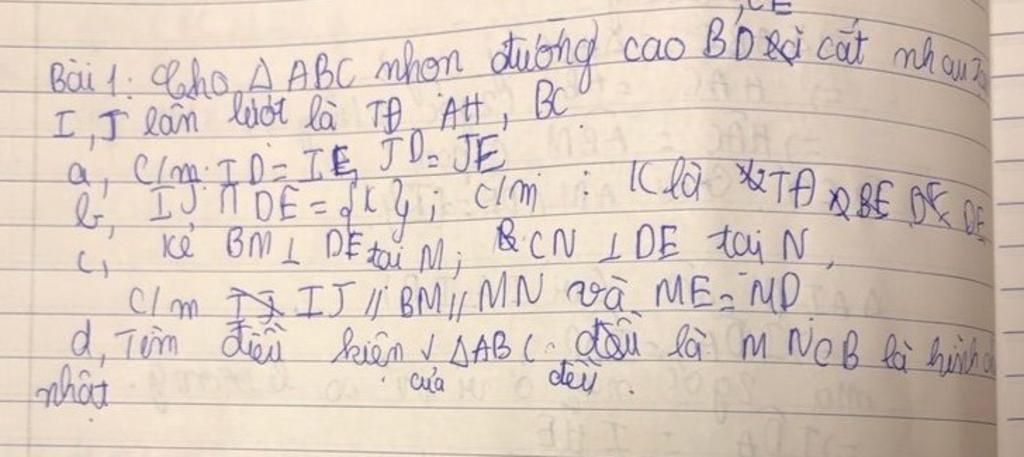 , CE
Bài 1: Cho Δ ABC nhọn đường cao BD cắt nhau
I, J lần lượt là TĐ AH, BC
a, C/m: ID = IE, JD = JE
b, IJ ∩ DE = {K}; C/m : K là TĐ DE
c, Kẻ BM ⊥ DE tại M; CN ⊥ DE tại N,
C/m IJ // BM // MN và ME = ND
d, Tìm điều kiện ΔABC là MNCB là hình
nhật của đều.